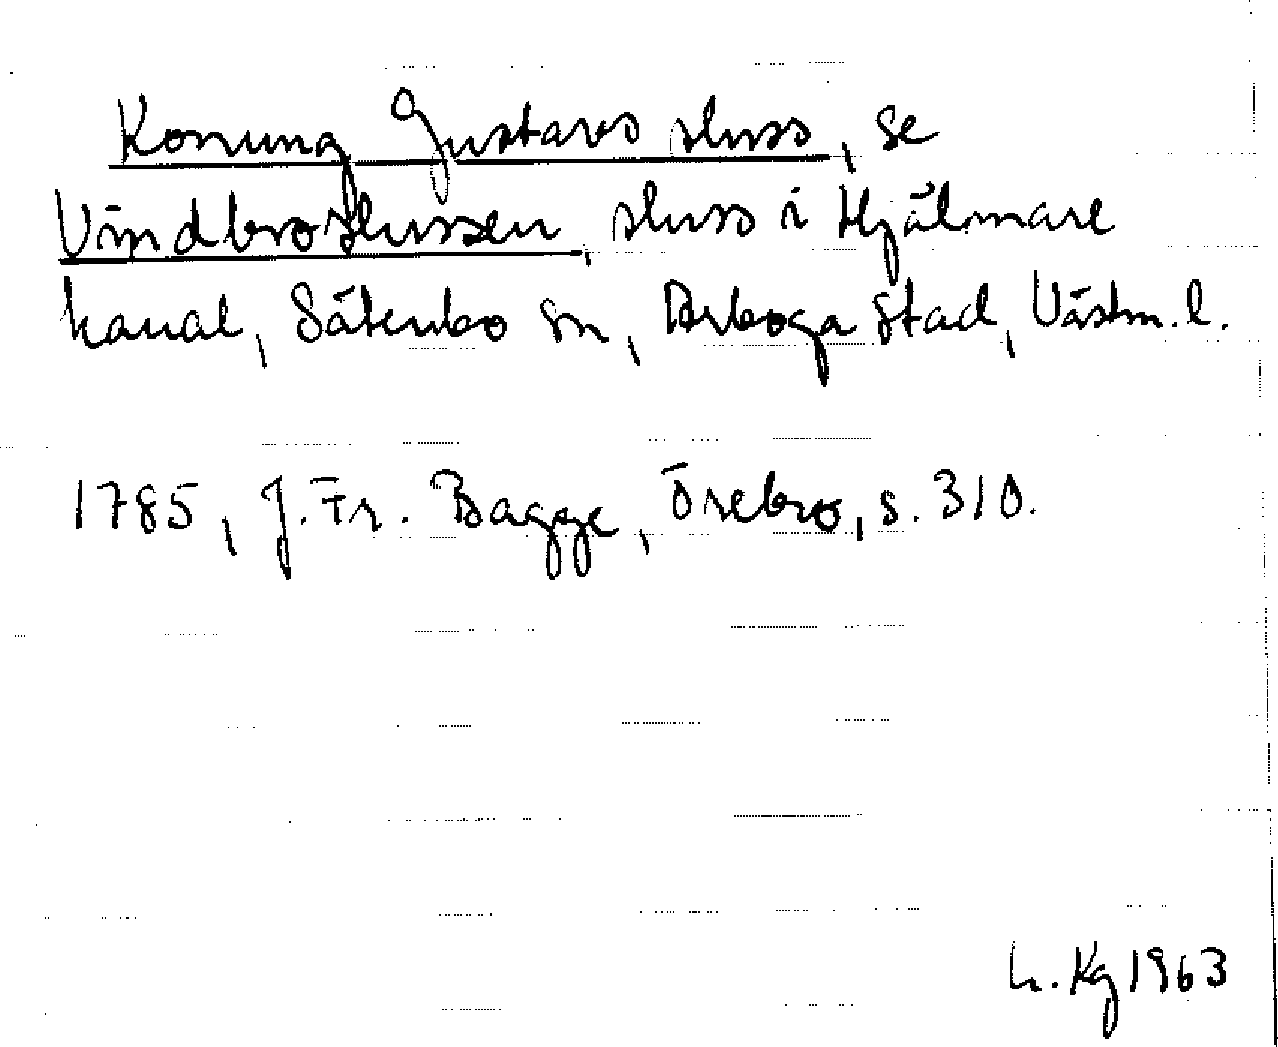 Konung Gustavs sluss, se
Vindbroslussen, sluss i Hjälmare
kanal, Säterbo sn, Arboga stad, Västm. l.
1785, J. Fr. Bagge, Örebro, s. 310.
L. Kg 1963